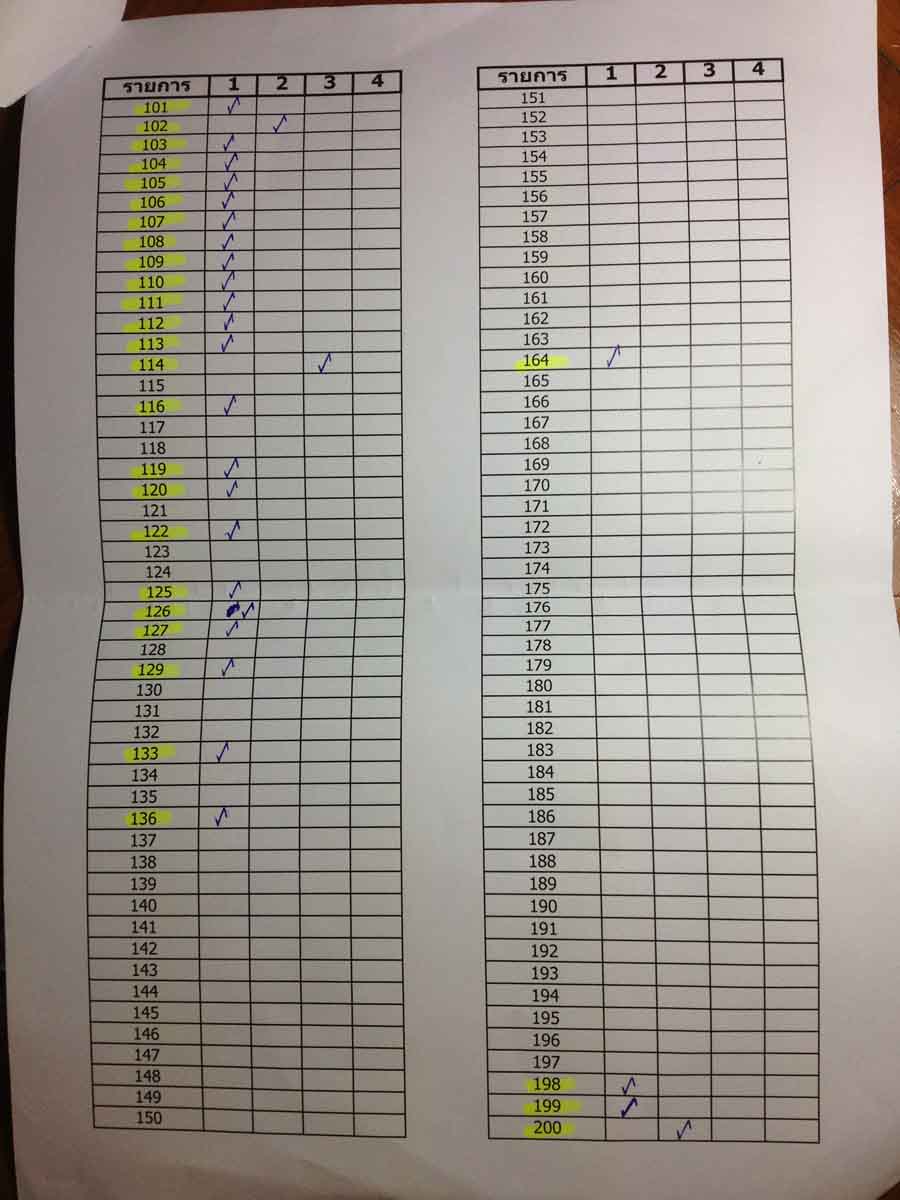 รายการ 1 2 3 4
101 ✓
102 ✓
103 ✓
104 ✓
105 ✓
106 ✓
107 ✓
108 ✓
109 ✓
110 ✓
111 ✓
112 ✓
113 ✓
114 ✓
115
116 ✓
117
118
119 ✓
120 ✓
121
122 ✓
123
124
125 ✓
126 ✓
127 ✓
128
129 ✓
130
131
132
133 ✓
134
135
136 ✓
137
138
139
140
141
142
143
144
145
146
147
148
149
150
รายการ 1 2 3 4
151
152
153
154
155
156
157
158
159
160
161
162
163
164 ✓
165
166
167
168
169
170
171
172
173
174
175
176
177
178
179
180
181
182
183
184
185
186
187
188
189
190
191
192
193
194
195
196
197
198 ✓
199 ✓
200 ✓